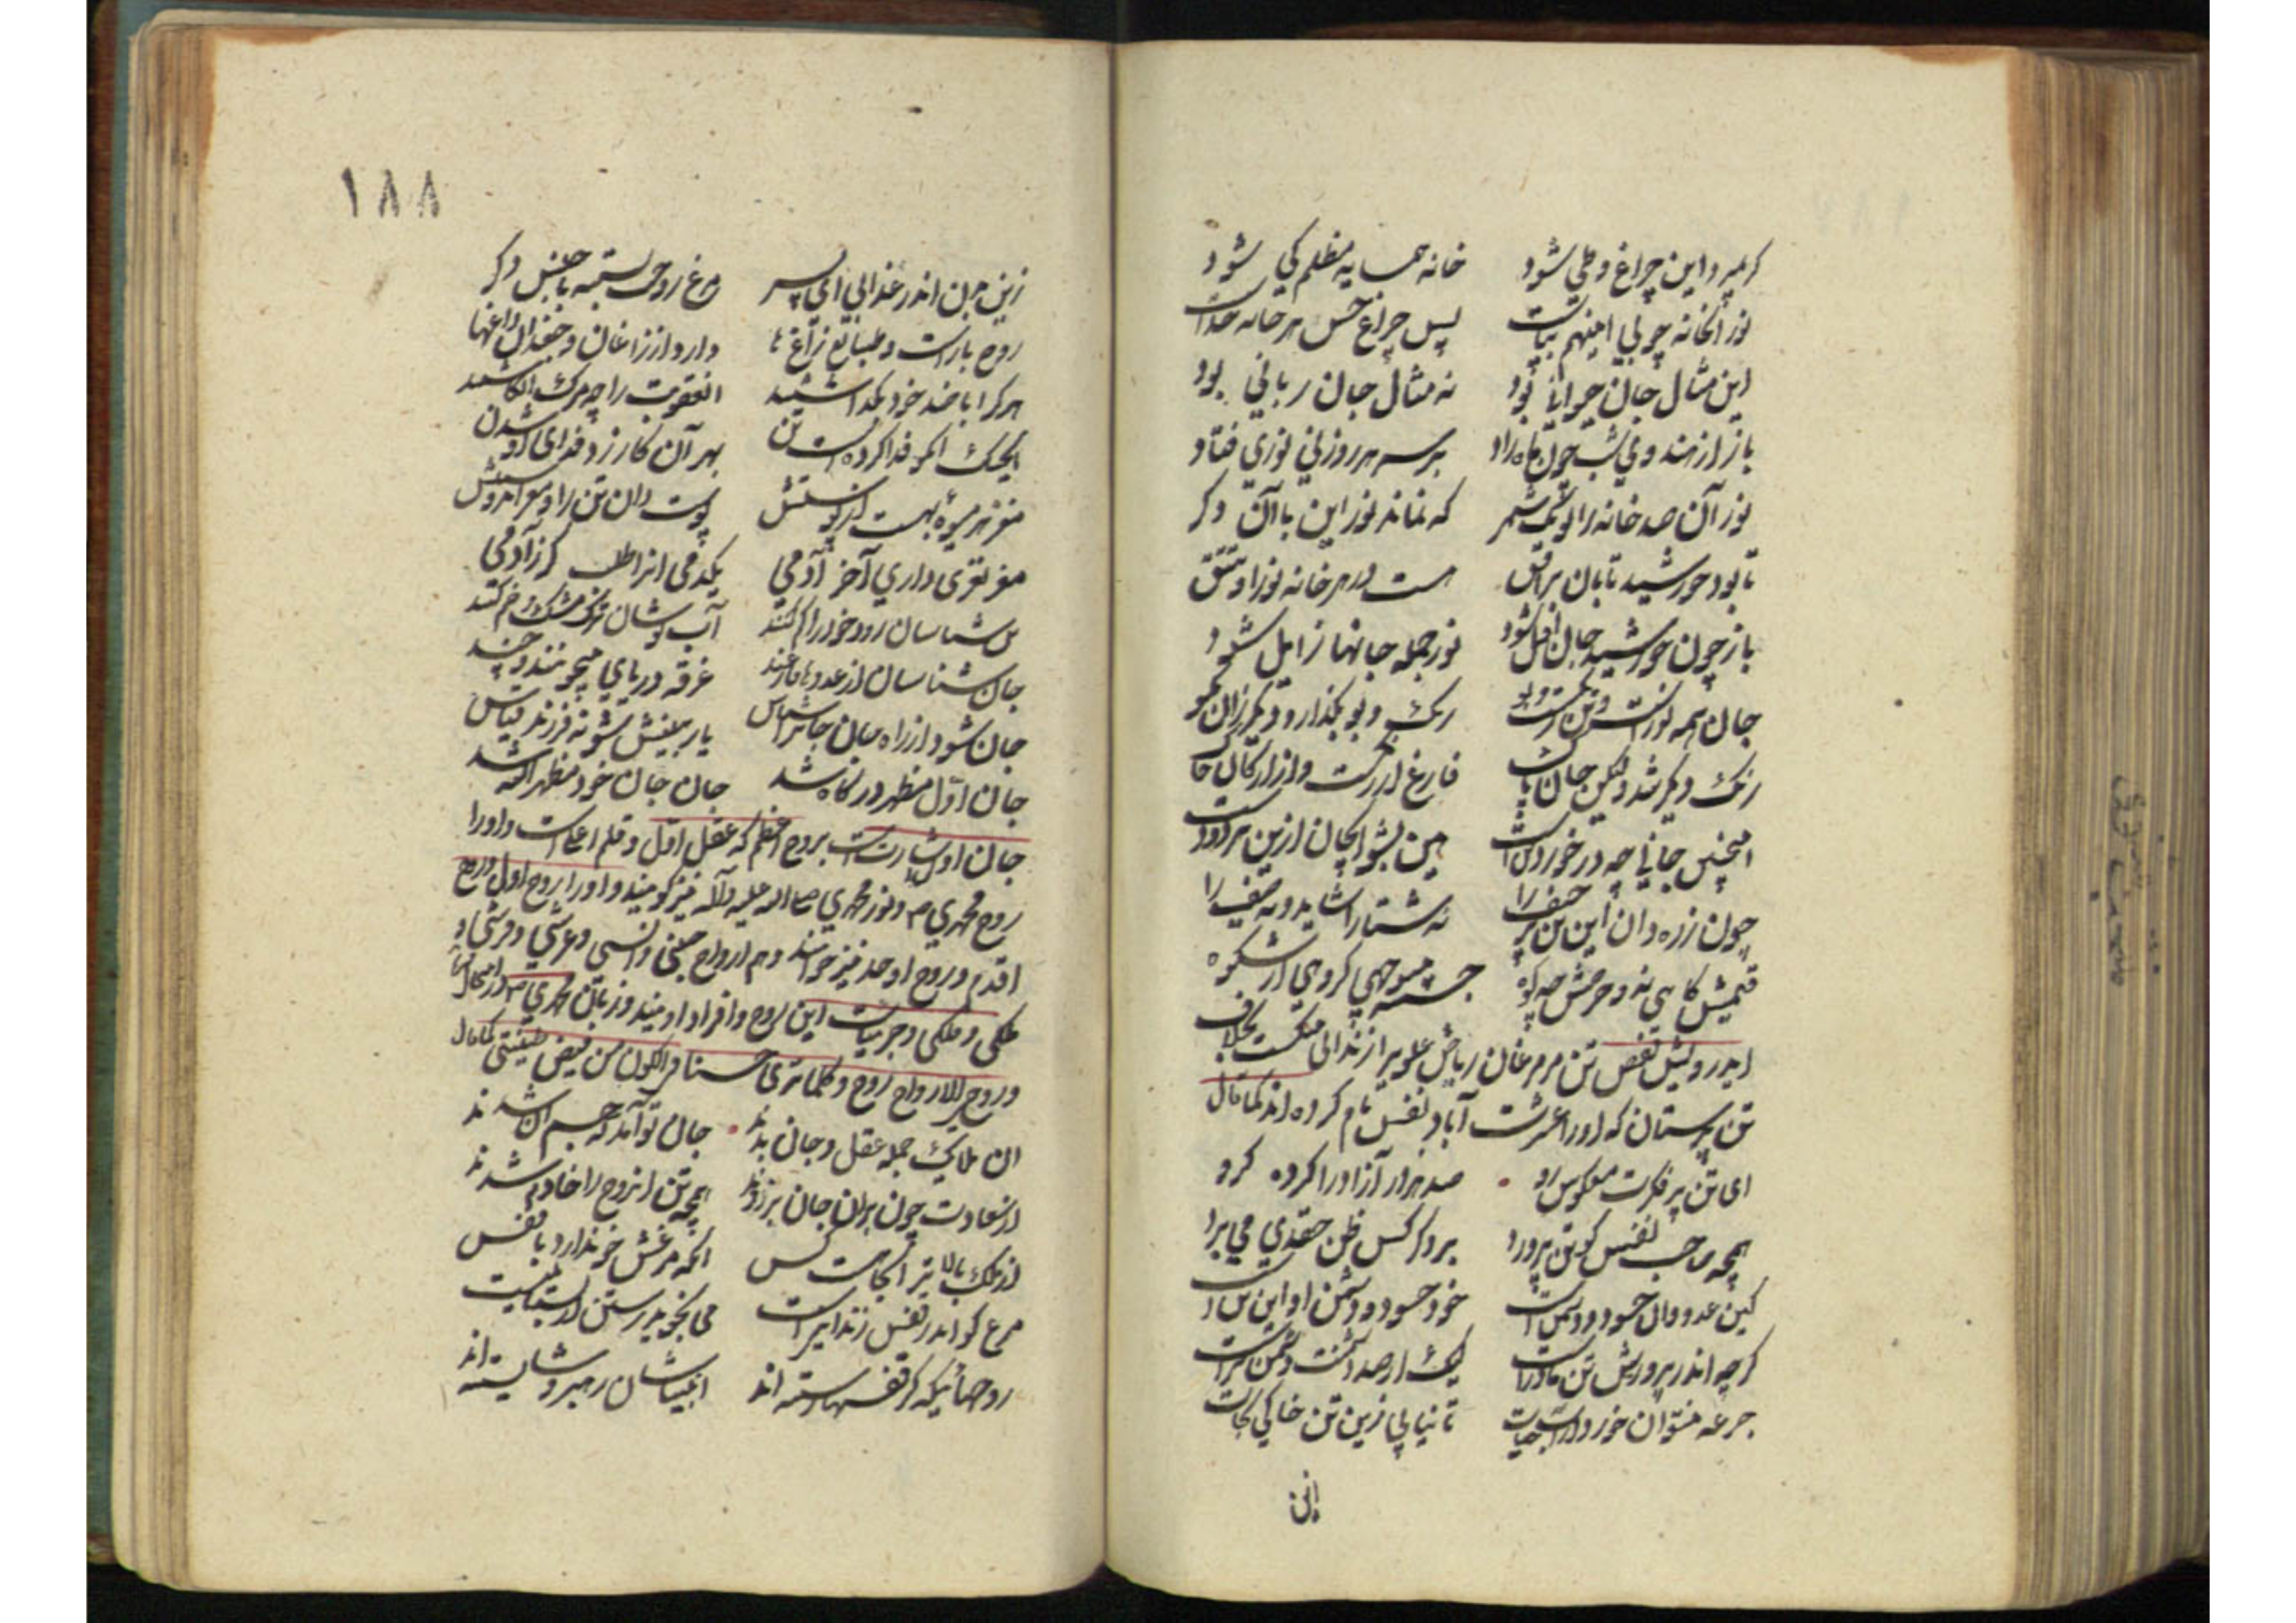 گر بمیرد این چراغ و طی شود خانه همسایه مظلم کی شود
نور آنخانه چو بی اینهم بپاست پس چراغ حس هر خانه جداست
این مثال جان حیوانی بود نه مثال جان ربانی بود
باز از هندوی شب چون ماه زاد بر سر هر روزنی نوری فتاد
نور آن صد خانه را تو یک شمر که نماند نور این با آن دگر
تا بود خورشید تابان بر افق هست در هر خانه نور او قنق
باز چون خورشید جان آفل شود نور جمله جانها زایل شود
جان همه نورست و تن رنگست و بو رنگ و بو بگذار و دیگر زان مگو
رنگ دیگر شد ولیکن جان پاک فارغ از رنگست و از ارکان خاک
اینچنین جانی چه در خورد تنست هین بشو ایجان ازین تن هر دو دست
چون زره دان این تن پر حیف را نه شتا را شاید و نه صیف را
قیمتش کاهی نه و حرصش چه کوه
ایدرویش قفص تن مر مرغان ریاض علویرا زندانی منکست بخلاف
تن پرستان که او را عشرت آباد نفس نام کرده اند کما قال
ای تن پر فکرت معکوس رو صد هزار آزاد را کرده گرو
همچو صاحب نفس کو تن پرورد بر دگر کس ظن حقدی می برد
کین عدو وان حسود و دشمن است خود حسود و دشمن او این تن است
گرچه اندر پرورش تن مادرست لیک از صد دشمنت دشمن ترست
جرعه نتوان خورد از آب حیات تا نیابی زین تن خاکی نجات
۱۸۸
زین بدن اندر عذابی ای پسر مرغ روحت بسته با جنس دگر
روح بازست و طبایع زاغها دارد از زاغان و جغدان داغها
هر کرا با ضد خود بگذاشتند آنعقوبت را چو مرگ انگاشتند
بهر آن کار زد و فدای شدن
مغز هر میوه بهست از پوستش پوست دان تن را و مغز آن دوستش
مغز نغزی داری آخر آدمی یکدمی آنرا طلب گر زآدمی
جان شناسان از عددها فارغند غرقه دریای بیچونند و چند
جان شو و از راه جان جانرا شناس یار بینش شو نه فرزند قیاس
جان اول مظهر درگاه شد جان جان خود مظهر الله شد
جان اول اشارتست بروح اعظم که عقل اول و قلم اعلاست و او را
روح محمدی و نور محمدی صلی الله علیه وآله نیز گویند و او را روح اول و روح
اقدم و روح اوحد نیز خوانند و هم ارواح جنی و انسی و عرشی و فرشی و
فلکی و ملکی و جزییات این روح و افراد اویند و زبان محمدی
و روحی للارواح روح و کلما تری حسنا فی الکون من فیض طینتی کما قال
آن ملایک جمله عقل و جان بدند جان نو آمد که جسم آن شدند
از سعادت چون بران جان بر زدند همچو تن آنروح را خادم شدند
از ملک بالاتر
مرغ کو اندر قفس زندانیست می نجوید رستن از نادانیست
روحهائیکه از قفسها رسته اند انبیاشان رهبر و شایسته اند